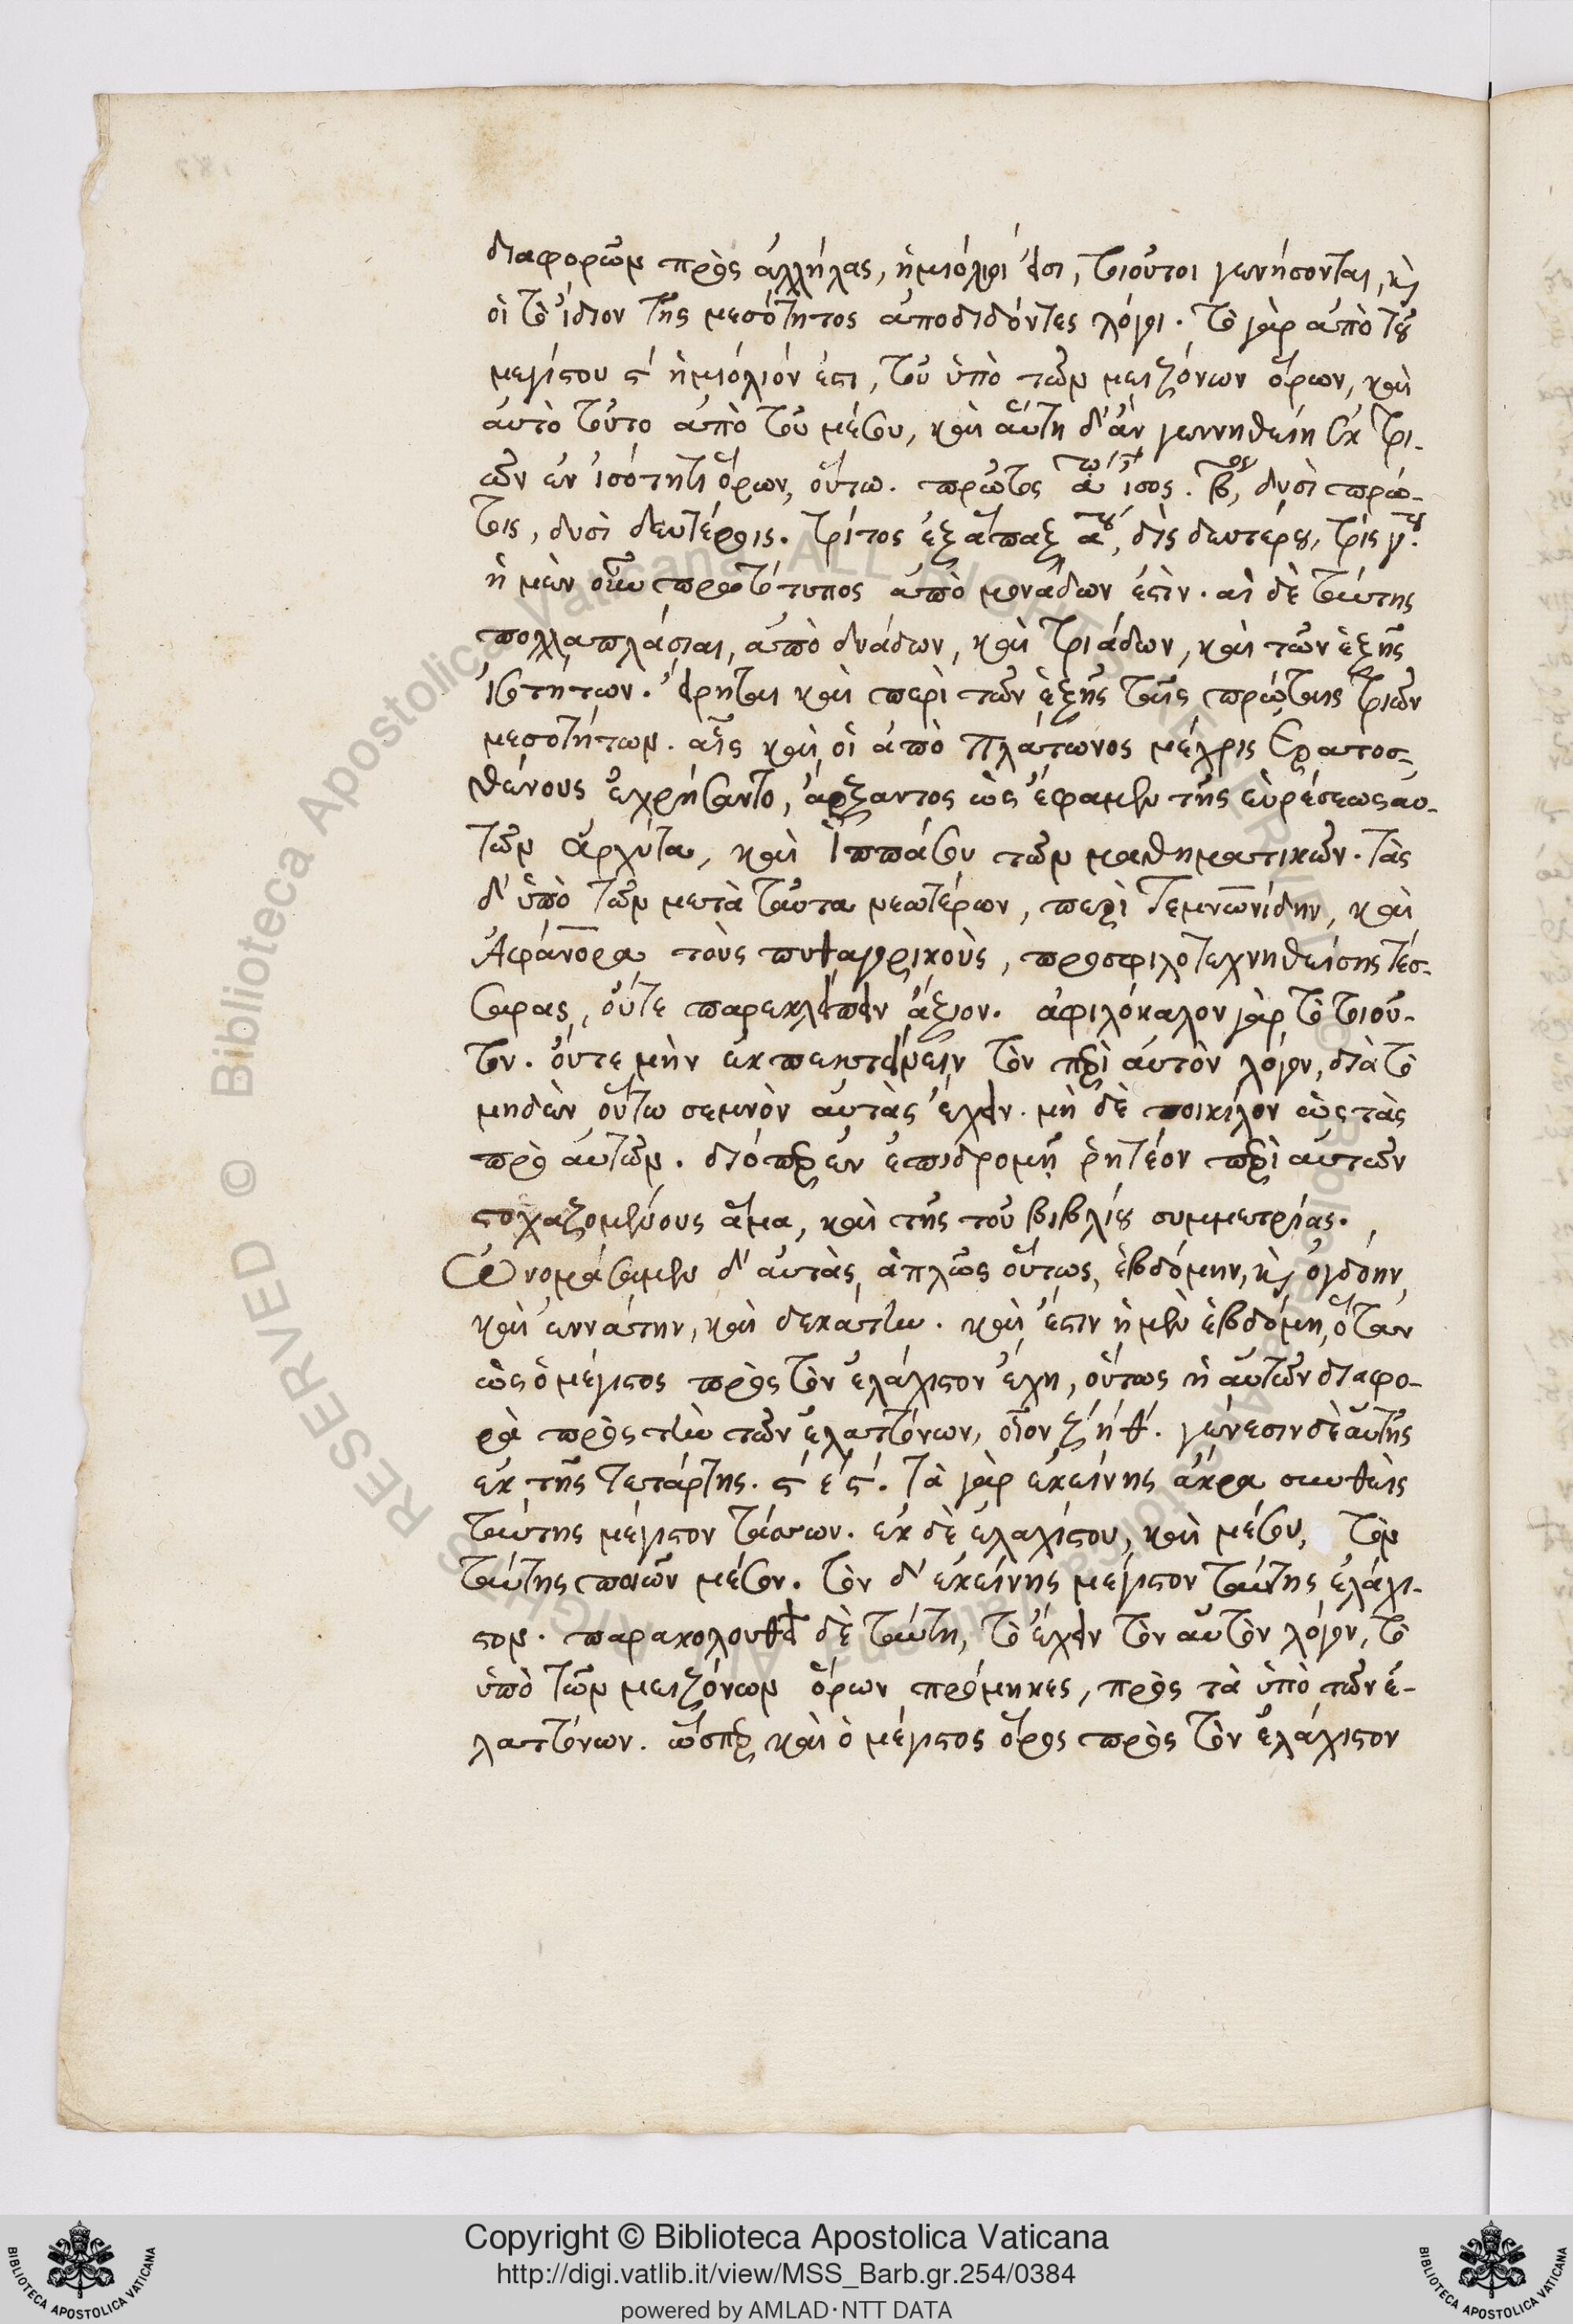 διαφορῶν πρὸς ἀλλήλας, ἡμιόλιοί εἰσι, τοιοῦτοι γενήσονται, κỳ
οἱ τὸ ἴδιον τῆς μεσότητος ἀποδιδόντες λόγοι. τὸ γὰρ ἀπὸ τοῦ
μεγίστου ϛ´ ἡμιόλιόν ἐστι, τοῦ ὑπὸ τῶν μειζόνων ὅρων, καὶ
αὐτὸ τοῦτο ἀπὸ τοῦ μέσου, καὶ αὕτη δ' ἂν γεννηθείη ἐκ τρι-
ῶν ἐν ἰσότητι ὅρων, οὕτω. πρῶτος α ἴσος. β, δυσὶ πρώ-
τοις, δυσὶ δευτέροις. τρίτος ἑξάπαξ α, δὶς δευτέρου, τρὶς γ.
ἡ μὲν οὖν πρωτότυπος ἀπὸ μονάδων ἐστίν. αἱ δὲ ταύτης
πολλαπλάσιαι, ἀπὸ δυάδων, καὶ τριάδων, καὶ τῶν ἑξῆς
ἰσοτήτων. εἴρηται καὶ περὶ τῶν ἑξῆς ταῖς πρώταις τριῶν
μεσοτήτων. αἷς καὶ οἱ ἀπὸ Πλάτωνος μέχρις Ἐρατοσ-
θένους ἐχρήσαντο, ἄρξαντος ὡς ἔφαμεν τῆς εὑρέσεως αυ-
τῶν Ἀρχύτα, καὶ Ἱππάσου τῶν μαθηματικῶν. τὰς
δ' ὑπὸ τῶν μετὰ ταῦτα νεωτέρων, περὶ Τεμνωνίδην, καὶ
Ἀφάνορα τοὺς πυθαγορικοὺς, προσφιλοτεχνηθείσης τέσ-
σαρας, οὔτε παρεκλείπειν ἄξιον. ἀφιλόκαλον γὰρ τὸ τοιοῦ-
τον. οὔτε μὴν ἐκπεριτείνειν τὸν περὶ αὐτὸν λόγον, διὰ τὸ
μηδὲν οὕτω σεμνὸν αὐτὰς ἔχειν. μὴ δὲ ποικίλον ὡς τὰς
πρὸ αὐτῶν. διόπερ ἐν ἐπιδρομῇ ῥητέον περὶ αὐτῶν
στοχαζομένους ἅμα, καὶ τῆς τοῦ βιβλίου συμμετρίας.
Ὀνομάσαμεν δ' αὐτὰς ἁπλῶς οὕτως, ἑβδόμην, κỳ ὀγδόην,
καὶ ἐννάτην, καὶ δεκάτην. καὶ ἔστιν ἡ μὲν ἑβδόμη, ὅταν
ὡς ὁ μέγιστος πρὸς τὸν ἐλάχιστον ἔχη, οὕτως ἡ αὐτῶν διαφο-
ρὰ πρὸς τὴν τῶν ἐλαττόνων, οἷον ζ´ ή θ´. γένεσιν δὲ αὐτῆς
ἐκ τῆς τετάρτης. ϛ´ έ ϛ´. τὰ γὰρ ἐκείνης ἄκρα συνθεὶς
ταύτης μέγιστον τάσσων. ἐκ δὲ ἐλαχίστου, καὶ μέσου, τὸν
ταύτης ποιῶν μέσον. τὸν δ' ἐκείνης μέγιστον ταύτης ἐλάχι-
στον. παρακολουθεῖ δὲ ταύτη, τὸ ἔχειν τὸν αὐτὸν λόγον, τὸ
ὑπὸ τῶν μειζόνων ὅρων πρόμηκες, πρὸς τὰ ὑπὸ τῶν ἐ-
λαττόνων. ὥσπερ καὶ ὁ μέγιστος ὅρος πρὸς τὸν ἐλάχιστον
RESERVED © Biblioteca Apostolica Vaticana ALL RIGHTS RESERVED © Biblioteca Apostolica Vaticana ALL RIGHTS
Copyright © Biblioteca Apostolica Vaticana
http://digi.vatlib.it/view/MSS_Barb.gr.254/0384
powered by AMLAD·NTT DATA
BIBLIOTECA APOSTOLICA VATICANA
BIBLIOTECA APOSTOLICA VATICANA